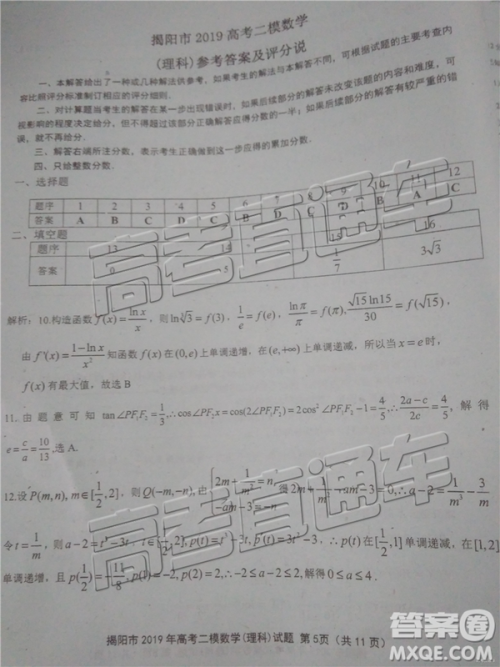 揭阳市2019高考二模数学
(理科)参考答案及评分说
一、本解答给出了一种或几种解法供参考，如果考生的解法与本解答不同，可根据试题的主要考查内
容比照评分标准制订相应的评分细则.
二、对计算题当考生的解答在某一步出现错误时，如果后续部分的解答未改变该题的内容和难度，可
视影响的程度决定给分，但不得超过该部分正确解答应得分数的一半；如果后续部分的解答有较严重的错
误，就不再给分.
三、解答右端所注分数，表示考生正确做到这一步应得的累加分数.
四、只给整数分数.
一、选择题
题序 1 2 3 4 5 6 7 8 9 10 11 12
答案 A B C D C A C
二、填空题
题序 13 14 15 16
答案 0 5 1/7 3√3
解析：10.构造函数 f(x)=lnx/x，则 ln∛3=f(3)，1/e=f(e)，lnπ/π=f(π)，√15 ln15/30=f(√15)，
由 f'(x)=(1-lnx)/x² 知函数 f(x) 在(0,e)上单调递增，在(e,+∞)上单调递减，所以当 x=e 时，
f(x) 有最大值，故选 B
11.由题意可知 tan∠PF₁F₂=1/3,∴cos∠PF₂x=cos(2∠PF₁F₂)=2cos²∠PF₁F₂-1=4/5,∴(2a-c)/2c=4/5，解得
e=c/a=10/13,选 A.
12.设 P(m,n),m∈[1/2,2]，则 Q(-m,-n)，由
令 t=1/m，则 a-2=t³-3t，t∈[1/2,2],p(t)=t³-3t,∴p(t)在[1/2,1]单调递减，在
单调递增，且 p(1/2)=-11/8,p(1)=-2,p(2)=2,∴-2≤a-2≤2,解得 0≤a≤4.
揭阳市 2019 年高考二模数学(理科)试题 第 5页（共 11 页）
高考直通车
高考直通车
作业帮